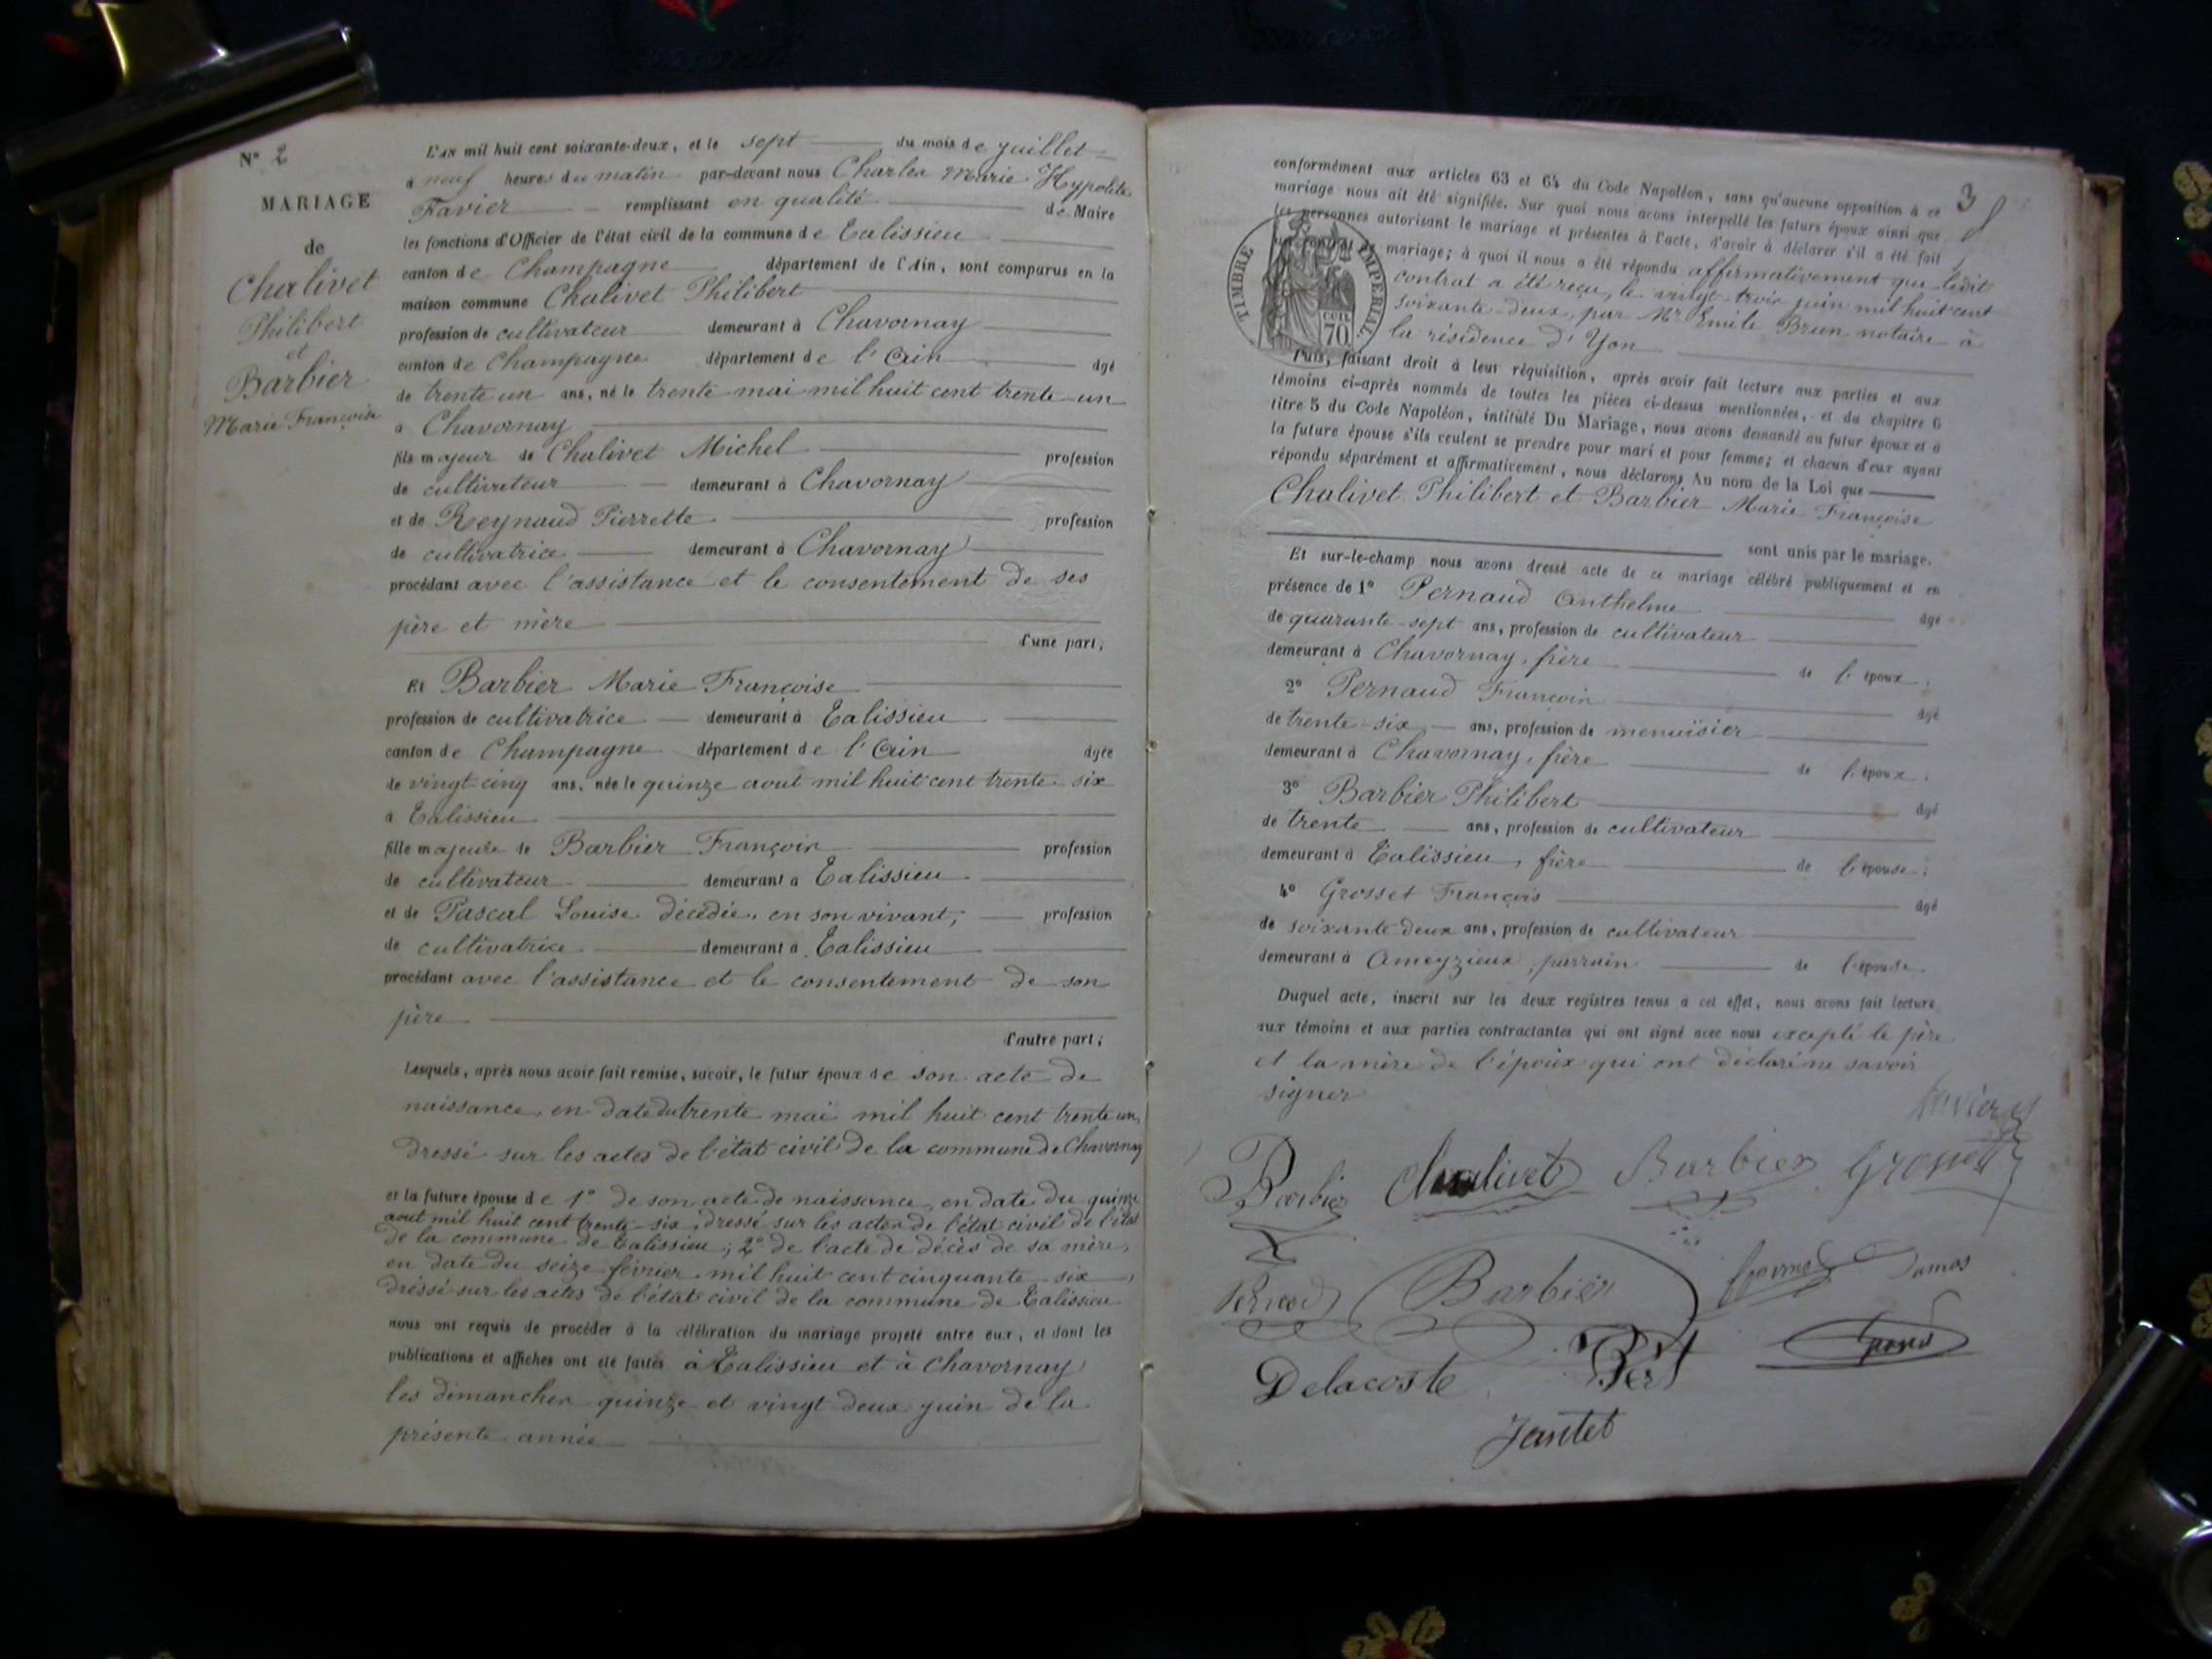 N° 2
MARIAGE
de
Chalivet
Philibert
et
Barbier
Marie Françoise
L'AN mil huit cent soixante-deux, et le sept du mois de juillet
à neuf heures du matin par-devant nous Charles Marie Hypolite
Favier remplissant en qualité de Maire
les fonctions d'Officier de l'état civil de la commune de Talissieu
canton de Champagne département de l'Ain, sont comparus en la
maison commune Chalivet Philibert
profession de cultivateur demeurant à Chavornay
canton de Champagne département de l'Ain âgé
de trente un ans, né le trente mai mil huit cent trente-un
à Chavornay
fils majeur de Chalivet Michel profession
de cultivateur demeurant à Chavornay
et de Reynaud Pierrette profession
de cultivatrice demeurant à Chavornay
procédant avec l'assistance et le consentement de ses
père et mère
d'une part;
Et Barbier Marie Françoise
profession de cultivatrice demeurant à Talissieu
canton de Champagne département de l'Ain âgée
de vingt cinq ans, née le quinze aout mil huit cent trente six
à Talissieu
fille majeure de Barbier François profession
de cultivateur demeurant à Talissieu
et de Pascal Louise décédée, en son vivant, profession
de cultivatrice demeurant à Talissieu
procédant avec l'assistance et le consentement de son
père
d'autre part;
Lesquels, après nous avoir fait remise, savoir, le futur époux de son acte de
naissance, en date du trente mai mil huit cent trente un,
dressé sur les actes de l'état civil de la commune de Chavornay
et la future épouse de 1° de son acte de naissance, en date du quinze
aout mil huit cent trente-six, dressé sur les actes de l'état civil de l'état
de la commune de Talissieu; 2° de l'acte de décès de sa mère,
en date du seize février mil huit cent cinquante six,
dressé sur les actes de l'état civil de la commune de Talissieu
nous ont requis de procéder à la célébration du mariage projeté entre eux, et dont les
publications et affiches ont été faites à Talissieu et à Chavornay
les dimanches quinze et vingt deux juin de la
présente année
3
conformément aux articles 63 et 64 du Code Napoléon, sans qu'aucune opposition à ce
mariage nous ait été signifiée. Sur quoi nous avons interpellé les futurs époux ainsi que
les personnes autorisant le mariage et présentes à l'acte, d'avoir à déclarer s'il a été fait
un contrat de mariage; à quoi il nous a été répondu affirmativement que ledit
TIMBRE IMPERIAL
70
contrat a été reçu, le vingt-trois juin mil huit cent
soixante-deux, par Mr Emile Brun notaire à
la résidence d'Yon
Puis, faisant droit à leur réquisition, après avoir fait lecture aux parties et aux
témoins ci-après nommés de toutes les pièces ci-dessus mentionnées, et du chapitre 6
titre 5 du Code Napoléon, intitulé Du Mariage, nous avons demandé au futur époux et à
la future épouse s'ils veulent se prendre pour mari et pour femme; et chacun d'eux ayant
répondu séparément et affirmativement, nous déclarons Au nom de la Loi que
Chalivet Philibert et Barbier Marie Françoise
sont unis par le mariage.
Et sur-le-champ nous avons dressé acte de ce mariage célébré publiquement et en
présence de 1° Pernaud Anthelme âgé
de quarante-sept ans, profession de cultivateur
demeurant à Chavornay, frère de l'époux;
2° Pernaud François âgé
de trente-six ans, profession de menuisier
demeurant à Chavornay, frère de l'époux;
3° Barbier Philibert âgé
de trente ans, profession de cultivateur
demeurant à Talissieu, frère de l'épouse;
4° Grosset François âgé
de soixante deux ans, profession de cultivateur
demeurant à Ameyzieux, parrain de l'épouse.
Duquel acte, inscrit sur les deux registres tenus à cet effet, nous avons fait lecture
aux témoins et aux parties contractantes qui ont signé avec nous excepté le père
et la mère de l'époux qui ont déclaré ne savoir
signer
Favier
Barbier Chalivet Barbier Grosset
Barbier
Delacoste
Jantet